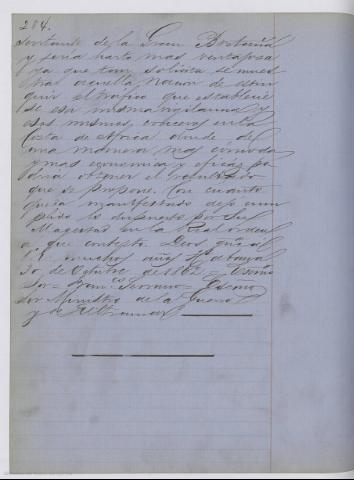 284.
sentante de la Gran Bretaña
y sería harto mas ventajosa
ya que tan solicita se mues
tra aquella nacion de estin
guir el trafico que estableci
se esa misma vigilancia y
esos mismos cruceros en la
Costa de Africa donde de
una manera mas cómoda
y mas economica y eficaz po
dria obtener el resultado
que se propone. Con cuanto
queda manifestado dejo cum
plido lo dispuesto por Su
Magestad en la Real orden
a que contesto. Dios gue. á
V.E. muchos años Habana
30 de Octubre de 1862 = Escmo
Sor = Franco. Serrano = Escmo
Sor Ministro de la Guerra
y de Ultramar